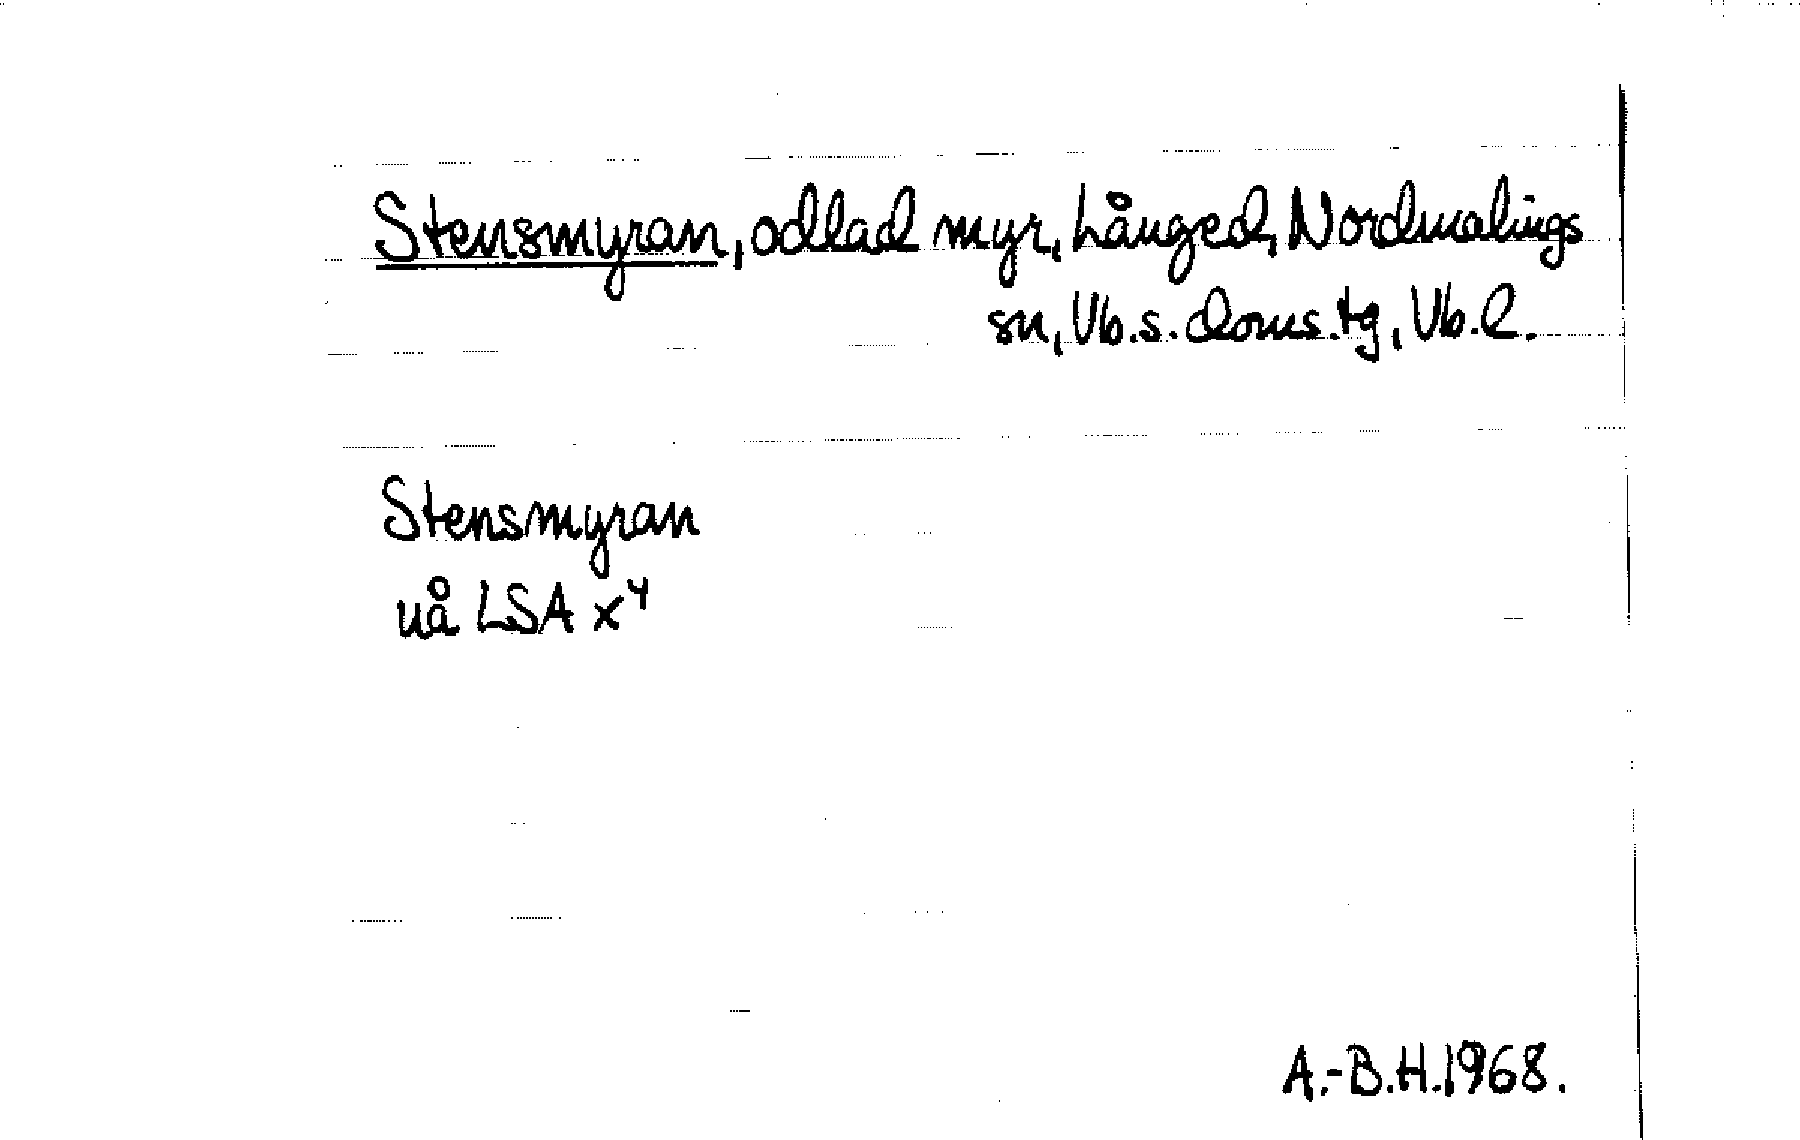 Stensmyran, odlad myr, Långed, Nordmalings
sn, Vb.s. doms.tg, Vb.l.
Stensmyran
uå LSA x⁴
A.-B.H.1968.